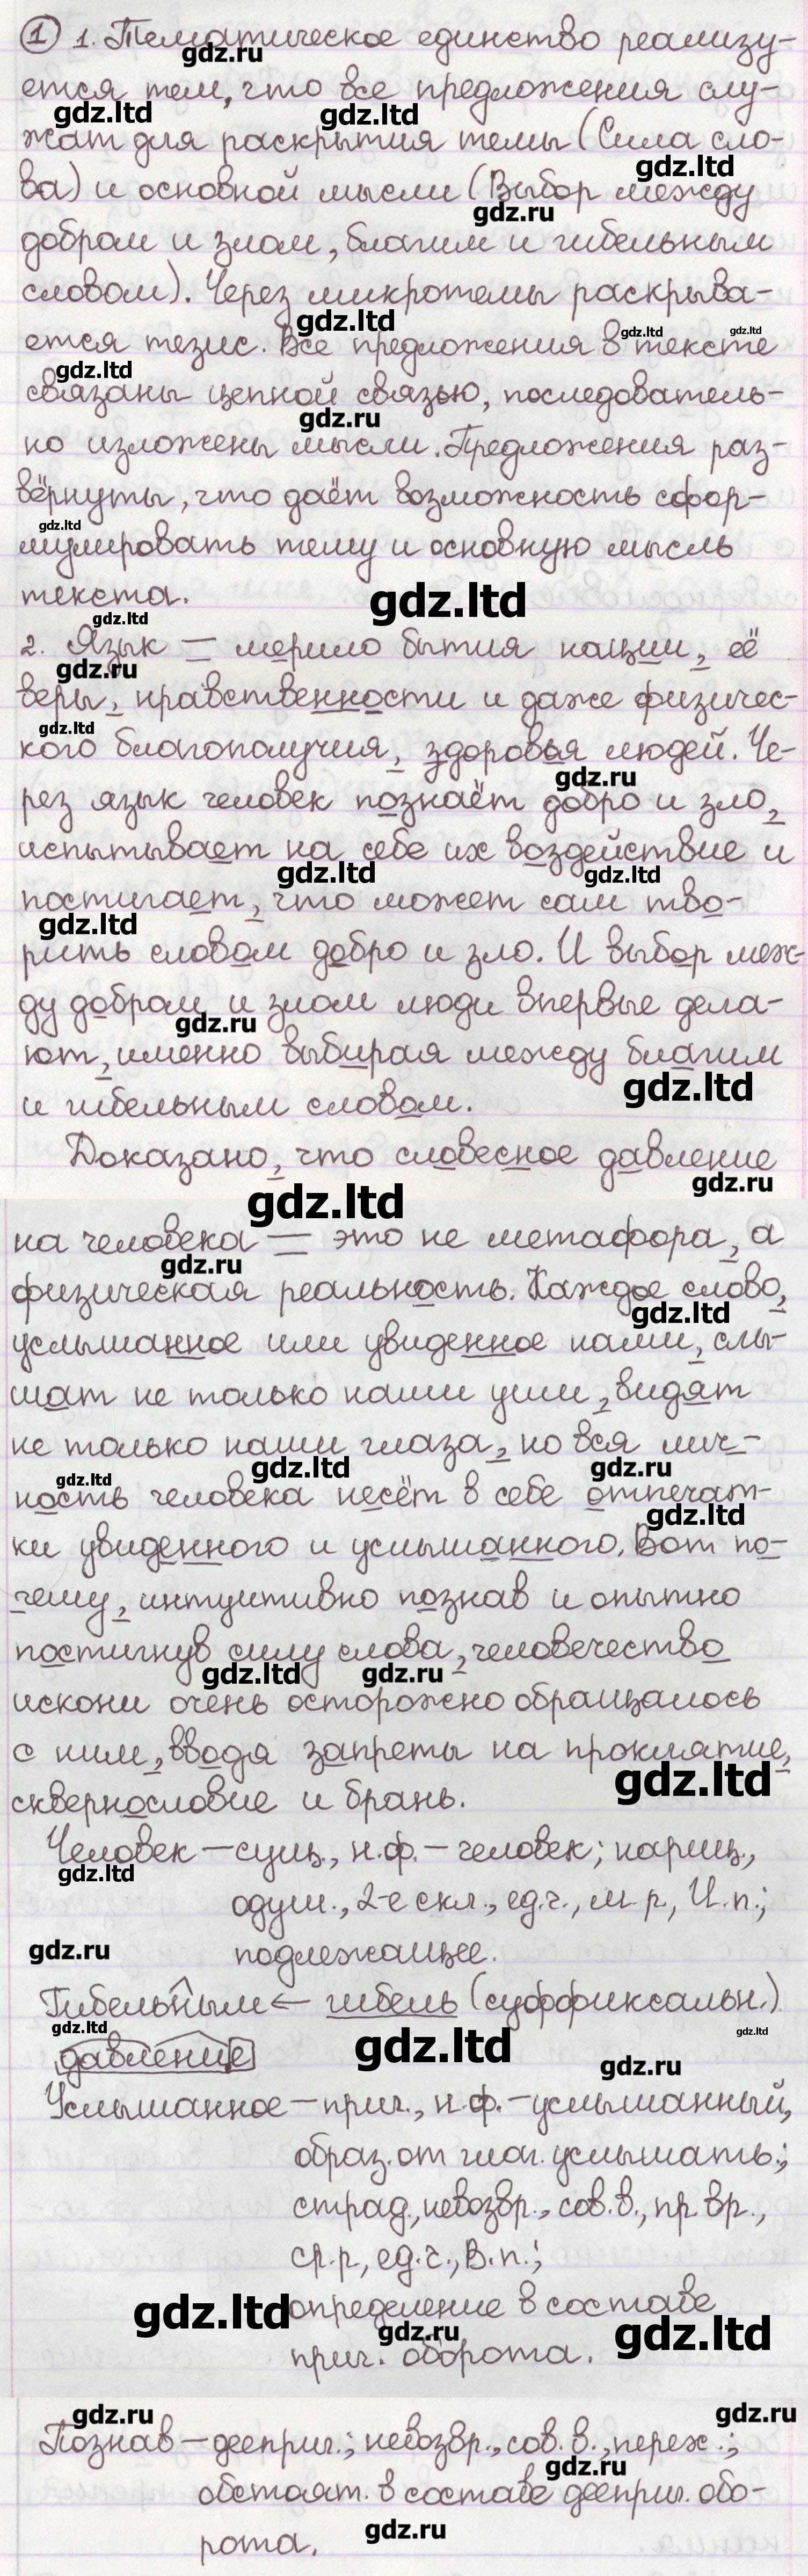 1 1. Тематическое единство реализу-
ется тем, что все предложения слу-
жат для раскрытия темы (Сила сло-
ва) и основной мысли (Выбор между
добром и злом, благим и гибельным
словом). Через микротемы раскрыва-
ется тезис. Все предложения в тексте
связаны цепной связью, последователь-
но изложены мысли. Предложения раз-
вёрнуты, что даёт возможность сфор-
мулировать тему и основную мысль
текста.
2. Язык – мерило бытия нации, её
веры, нравственности и даже физичес-
кого благополучия, здоровья людей. Че-
рез язык человек познаёт добро и зло,
испытывает на себе их воздействие и
постигает, что может сам тво-
рить словом добро и зло. И выбор меж-
ду добром и злом люди впервые дела-
ют, именно выбирая между благим
и гибельным словом.
Доказано, что словесное давление
на человека – это не метафора, а
физическая реальность. Каждое слово,
услышанное или увиденное нами, слы-
шат не только наши уши, видят
не только наши глаза, но вся лич-
ность человека несёт в себе отпечат-
ки увиденного и услышанного. Вот по-
чему, интуитивно познав и опытно
постигнув силу слова, человечество
искони очень осторожно обращалось
с ним, вводя запреты на проклятие,
сквернословие и брань.
Человек – сущ., н.ф. – человек; нариц.,
одуш., 2-е скл., ед.ч., м.р., И.п.;
подлежащее.
Гибельным ← гибель (суффиксальн.)
давление
Услышанное – прич., н.ф. – услышанный,
образ. от глаг. услышать.;
страд., невозвр., сов.в., пр.вр.,
ср.р., ед.ч., В.п.;
определение в составе
прич. оборота.
Познав – дееприч.; невозвр., сов.в., перех.;
обстоят. в составе дееприч. обо-
рота.
gdz.ru
gdz.ltd